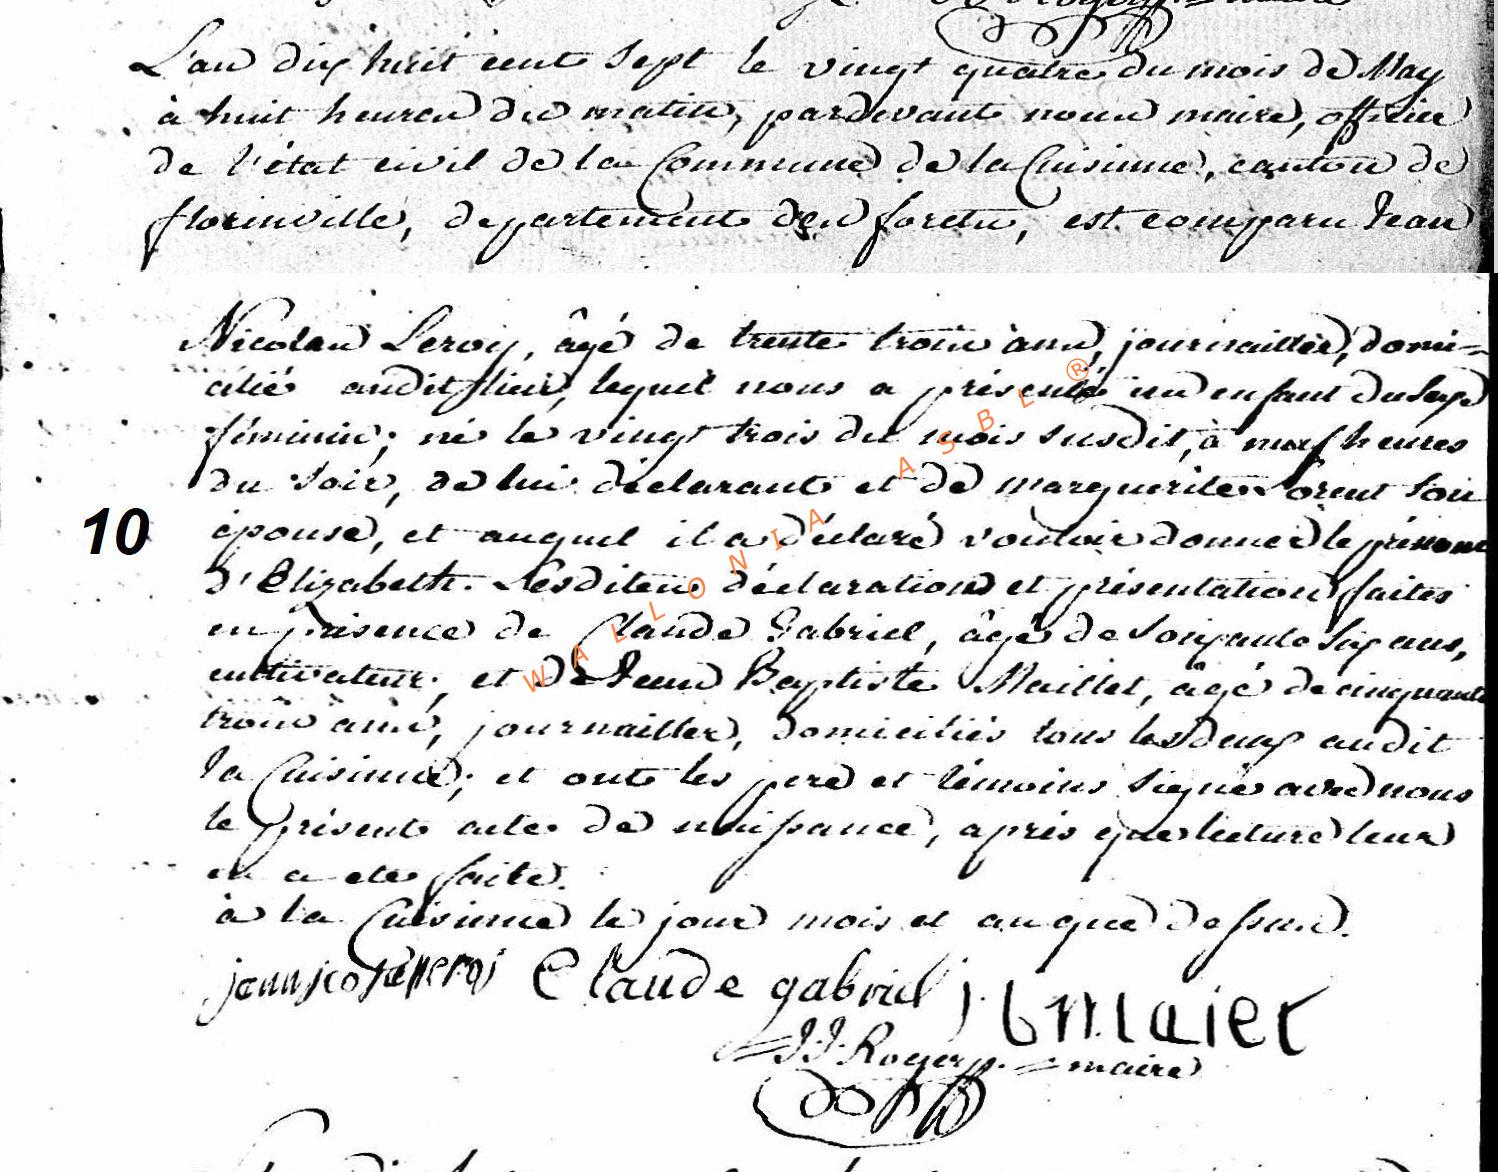 L'an dix huit cent sept le vingt quatre du mois de May
à huit heures du matin, pardevant nous maire, officier
de l'état civil de la Commune de la Cuisinne, canton de
florinville, departement des forets, est comparu Jean
Nicolas Leroy, âgé de trente trois ans, journaillier, domi=
cilié audit lieu, lequel nous a présenté un enfant du sexe
féminin, né le vingt trois du mois susdit, à neuf heures
du soir, de lui déclarant et de marguerite Lorent son
10
épouse, et auquel il a déclaré vouloir donner le prénom
d'Elizabeth. Lesdites déclaration et présentation faites
en présence de Claude Gabriel, âgé de soixante six ans,
cultivateur, et de Jean Baptiste Maillet, âgé de cinquante
trois ans, journaillier, domiciliés tous les deux audit
la Cuisinne; et ont les pere et témoins signé avec nous
le présent acte de naissance, après que lecture leur
en a eté faite.
à la Cuisinne le jour mois et an que dessus.
Claude gabriel
J. J. Roger = maire
WALLONIA ASBL ®